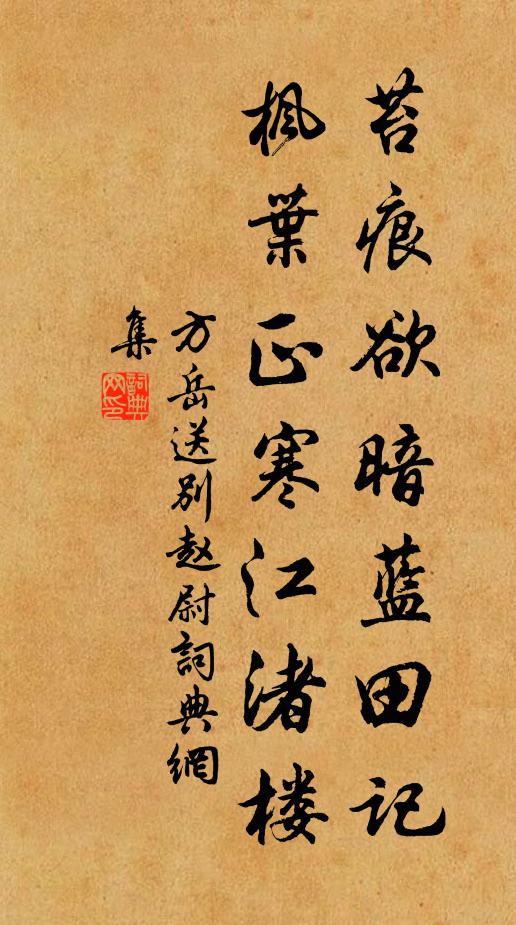 苔痕欲暗蓝田记
枫葉正寒江渚楼
方岳送别赵尉詞典網
集
詞典网印